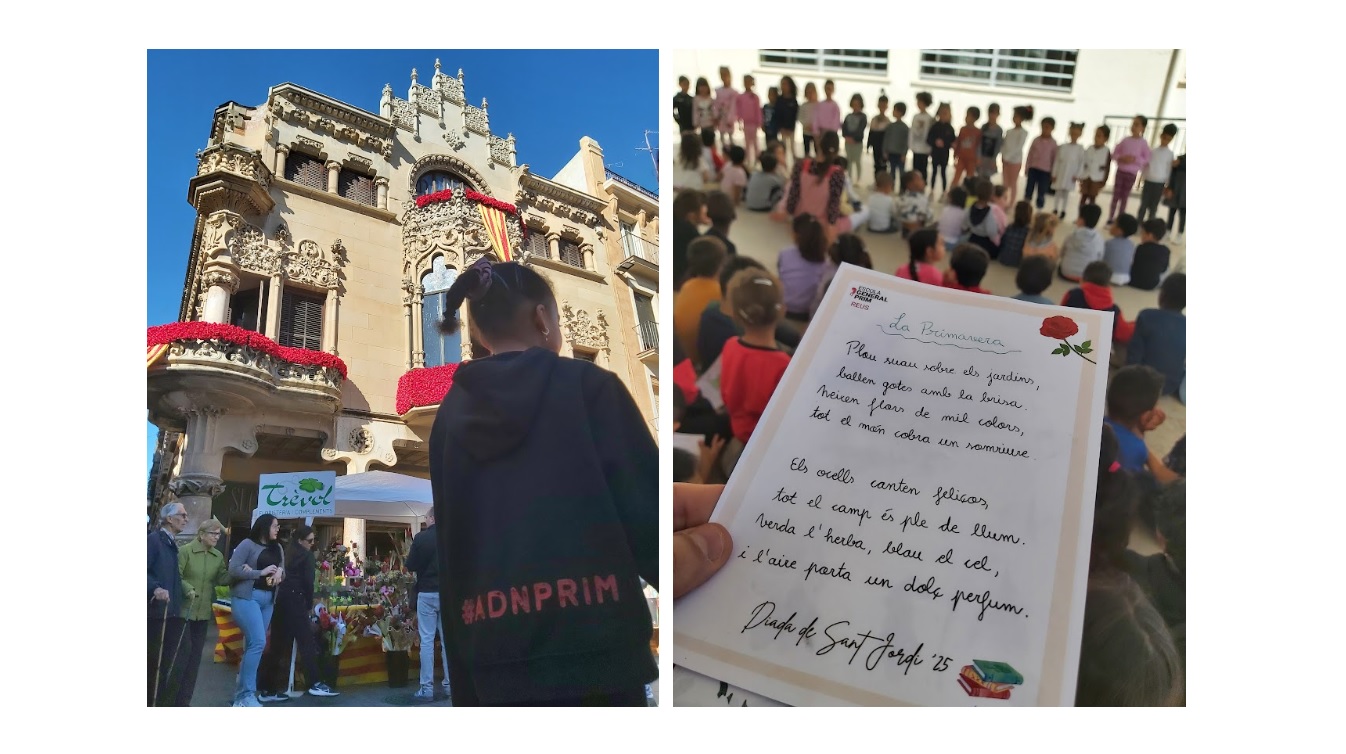 Trèvol
#ADNPRIM
ESCOLA
GENERAL
PRIM
REUS
La Primavera
Plou suau sobre els jardins,
ballen gotes amb la brisa.
Neixen flors de mil colors,
tot el món cobra un somriure.
Els ocells canten feliços,
tot el camp és ple de llum.
Verda l'herba, blau el cel,
i l'aire porta un dolç perfum.
Diada de Sant Jordi '25